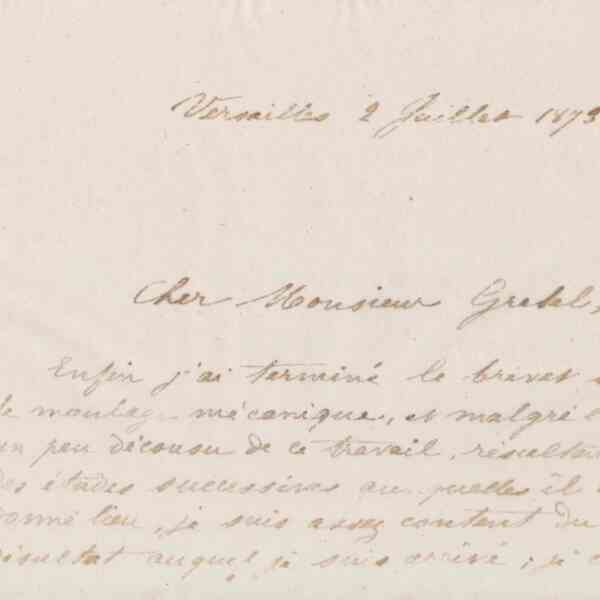 Versailles 2 Juillet 1873
Cher Monsieur Grebel,
Enfin j'ai terminé le brevet
de moulage mécanique, et malgré
un peu décousu de ce travail, résultant
des études successives auxquelles il
donné lieu, je suis assez content du
résultat auquel je suis arrivé ; j'